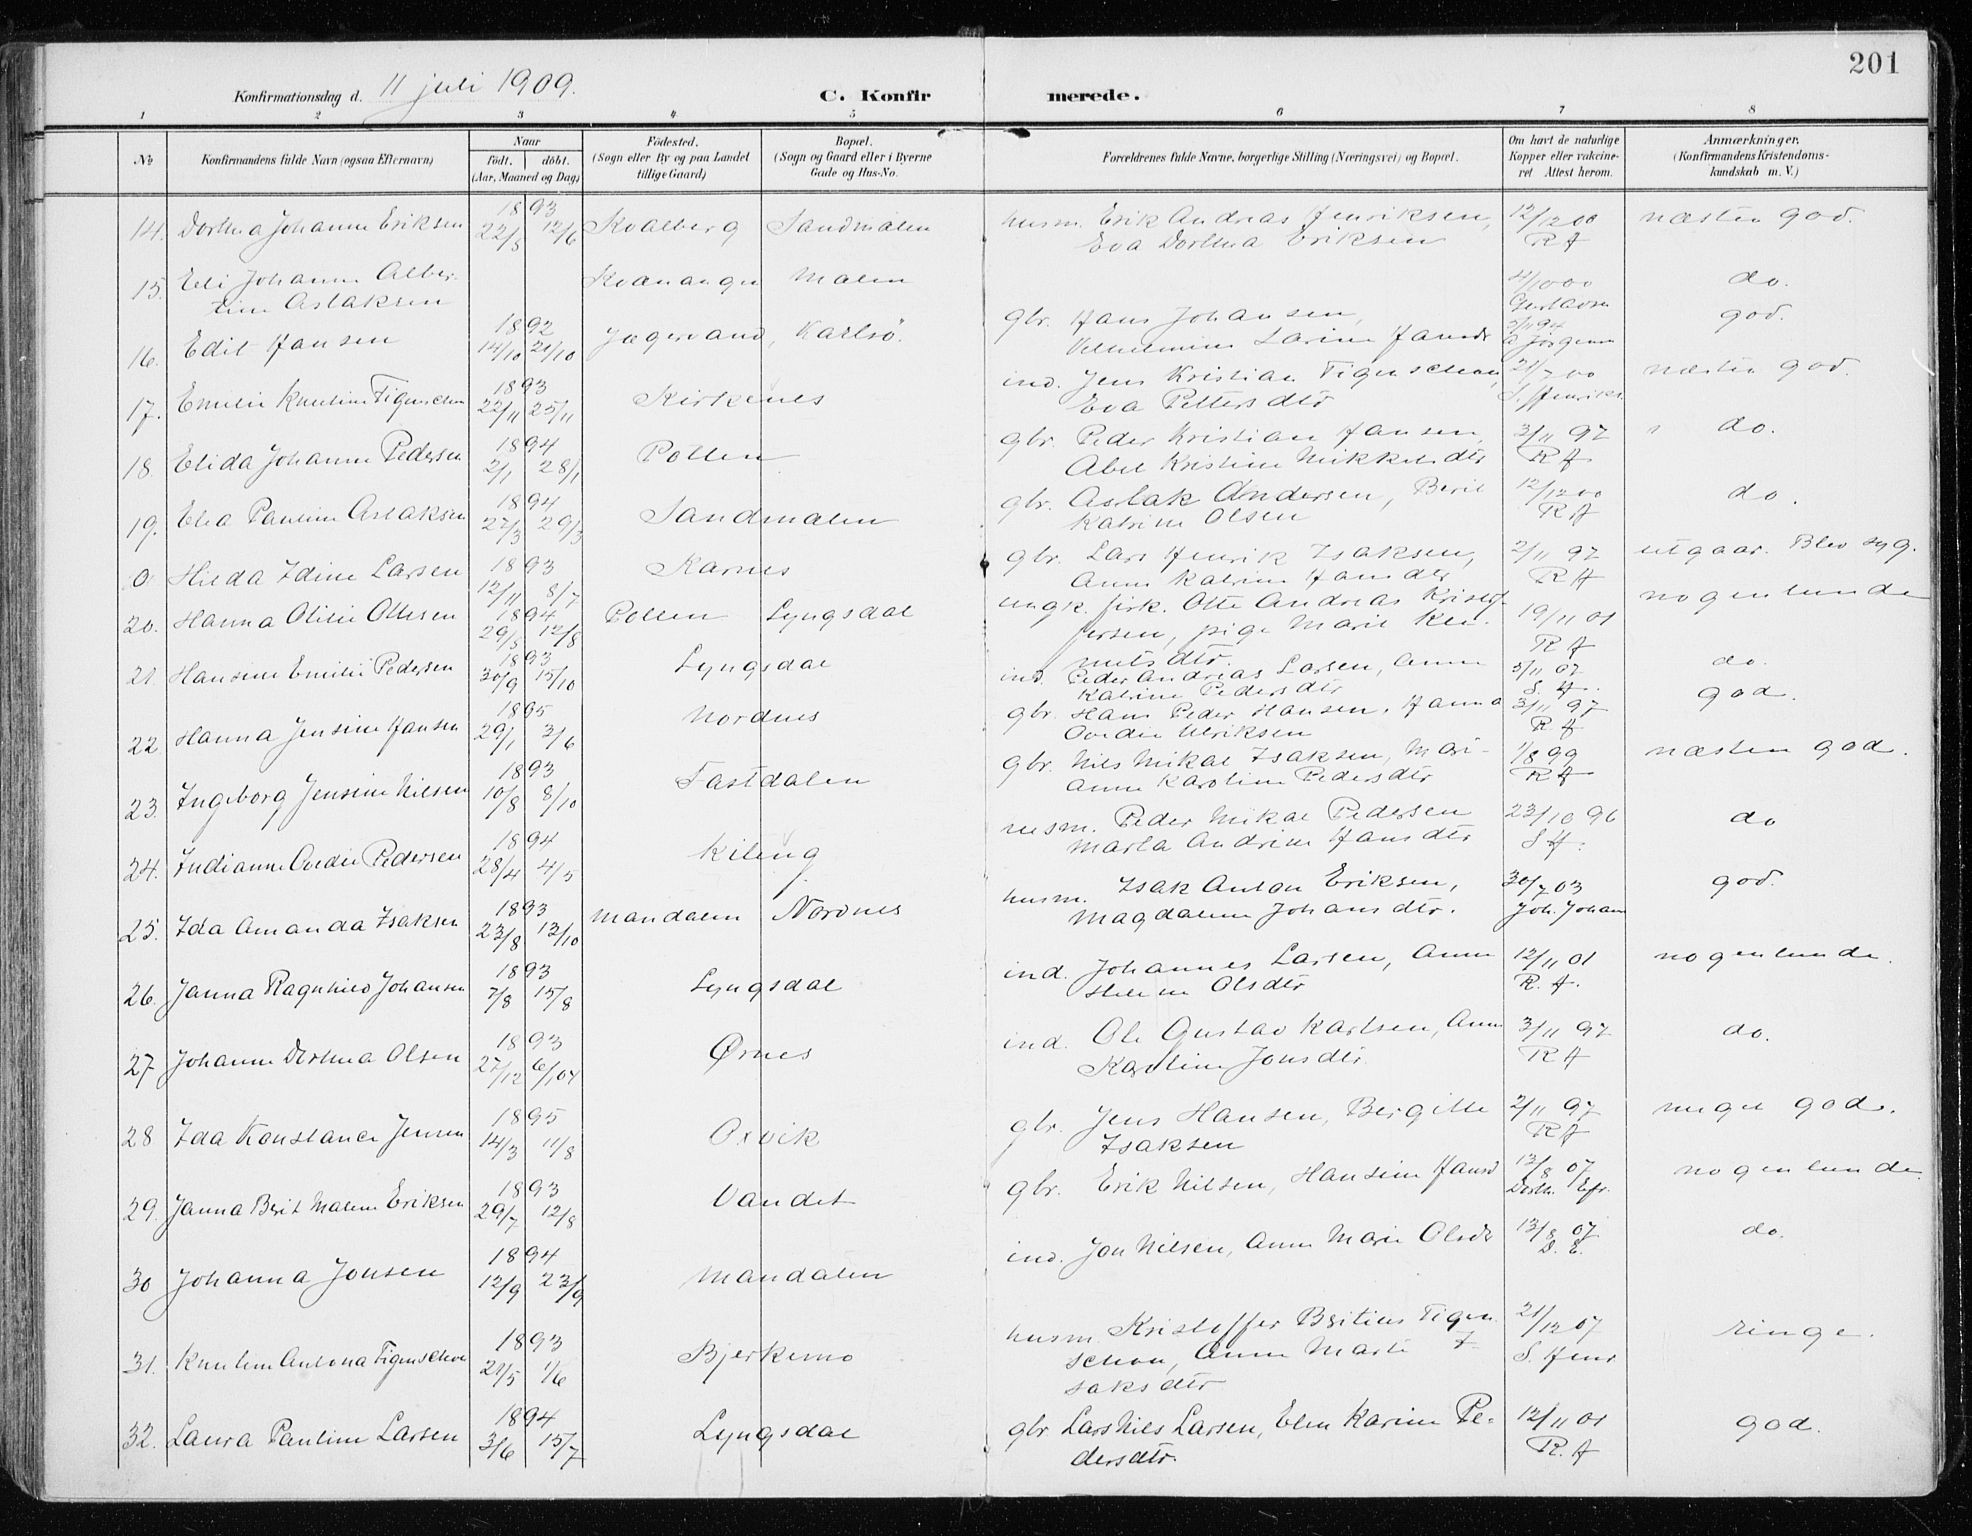 201
Konfirmationsdag d. 11 juli 1909.
C. Konfirmerede.
1 2 3 4 5 6 7 8
No
Konfirmandens fulde Navn (ogsaa Efternavn)
Naar
Födt. döbt.
(Aar, Maaned og Dag)
Födested.
(Sogn eller By og paa Landet
tillige Gaard)
Bopæl.
(Sogn og Gaard eller i Byerne
Gade og Hus-No.
Forældrenes fulde Navne, borgerlige Stilling (Næringsvei) og Bopæl.
Om havt de naturlige
Kopper eller vakcine-
ret Attest herom.
Anmærkninger.
(Konfirmandens Kristendoms-
kundskab m. V.)
14. Dorthea Johanne Eriksen 1893 22/5 12/6 Kvalberg Sandmælen husm. Erik Andreas Henriksen, 12/12 00 næsten god.
Eva Dorthea Eriksen R H
15. Eli Johanne Alber-
tine Aslaksen Kvænangen Malen 4/10 00 do.
16. Edit Hansen 1892 14/10 21/10 Jægervand, Karlsö. gbr. Hans Johansen, 3/11 94 god.
Vilhelmine Larine Hansdr
17. Emilie Knutine Figenschou 1893 22/11 25/11 Kirkenes ind. Jens Kristian Figenschou, 21/7 00 næsten god.
Eva Pettersdtr S. Henriks.
18. Elida Johanne Pedersen 1894 2/1 28/1 Pollen gbr. Peder Kristian Hansen, 3/11 97 do.
Abel Kristine Mikkelsdtr R H
19. Elea Pauline Aslaksen 1894 27/3 29/3 Sandmælen gbr. Aslak Andersen, Beret 12/12 00 do.
Katrine Olsen R H
0 Hilda Idine Larsen 1893 12/11 8/7 Karnes gbr. Lars Henrik Isaksen, 2/11 97 utgaar. Blev syg.
Anne Katrine Hansdtr R H
20. Hanna Olilie Ottesen 1894 29/5 12/8 Pollen Lyngsdal ungk. fisk. Otte Andreas Kristof- 19/11 01 nogenlunde
fersen, pige Marit Kle-
metsdtr. R H
21. Hansine Emilie Pedersen 1893 30/9 15/10 Lyngsdal ind. Peder Andreas Larsen, Anne 5/11 07 do.
Katrine Pedersdtr S. H.
22 Hanna Jensine Hansen 1895 29/1 3/6 Nordnes gbr. Hans Peder Hansen, Hanna 3/11 97 god.
Ovedie Ulriksen R H
23. Ingeborg Jensine Nilsen 1893 10/8 8/10 Fastdalen gbr. Nils Mikal Isaksen, Mari- 1/8 99 næsten god.
anne Karoline Pedersdtr R H
24. Indianne Ovedie Pedersen 1894 28/4 4/5 Kileng husm. Peder Mikal Pedersen 23/10 96 do
Marta Andrine Hansdtr S H.
25. Ida Amanda Isaksen 1893 23/8 13/10 Mandalen Nordnes husm. Isak Anton Eriksen, 30/7 03 god.
Magdalene Johansdtr. Joh. Johan
26. Janna Ragnhild Johansen 1893 7/8 15/8 Lyngsdal ind. Johannes Larsen, Anne 12/11 01 nogenlunde.
Helene Olsdtr R. H.
27 Johanne Dorthea Olsen 1893 27/12 6/1 04 Ørnes ind. Ole Gustav Karlsen, Anne 3/11 97 do.
Karoline Jonsdtr. R H
28 Ida Konstance Jensen 1895 14/3 11/8 Oxvik gbr. Jens Hansen, Bergitte 2/11 97 meget god.
Isaksen R H
29. Janna Berit Malene Eriksen 1893 29/7 12/8 Vandet gbr. Erik Nilsen, Hansine Hansd 13/8 07 nogenlunde.
Dorth. Efr.
30 Johanna Jonsen 1894 12/9 23/9 Mandalen ind. Jon Nilsen, Anne Marie Olsdr 13/8 07 do.
D. E.
31. Knutine Antona Figenschou 1893 21/5 1/6 Bjerkemo husm. Kristoffer Beritius Figen- 21/12 07 ringe.
schou, Anne Marte I- S. Henr
saksdtr
32. Laura Pauline Larsen 1894 3/6 15/7 Lyngsdal gbr Lars Nils Larsen, Elen Karine Pe- 12/11 01 god.
dersdtr. R. H